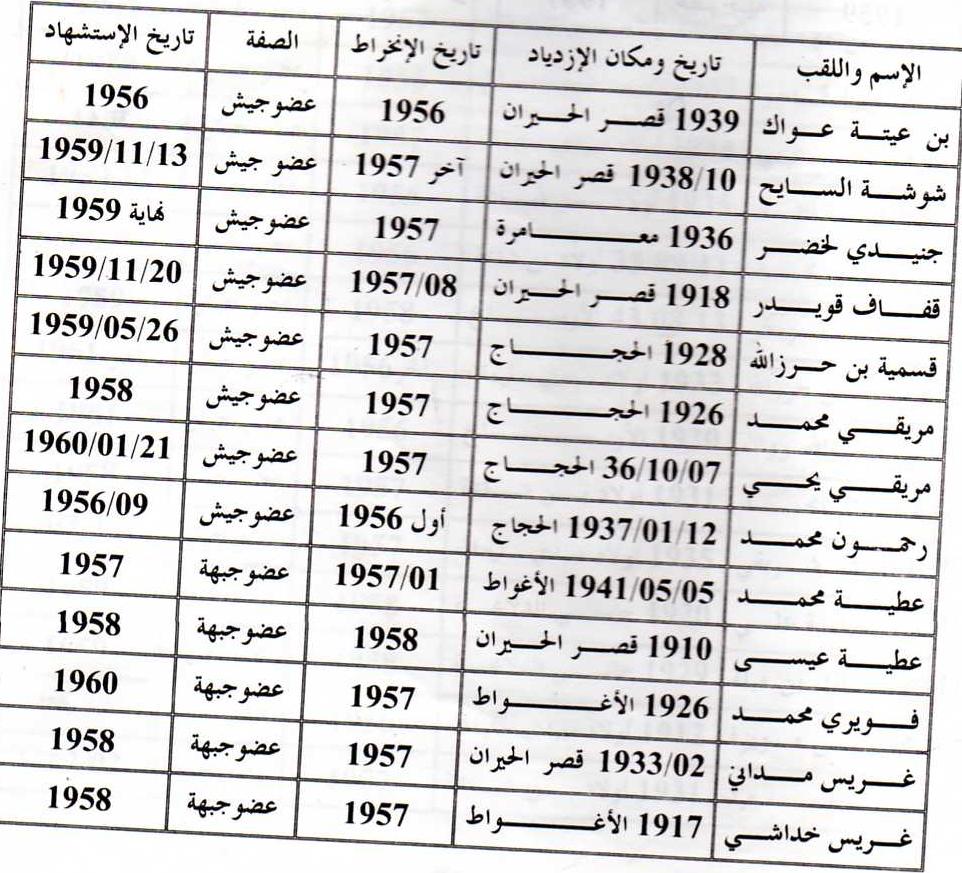 الإسم واللقب تاريخ ومكان الإزدياد تاريخ الإنخراط الصفة تاريخ الإستشهاد
بن عيتة عواك 1939 قصر الحيران 1956 عضو جيش 1956
شوشة السايح 1938/10 قصر الحيران آخر 1957 عضو جيش 1959/11/13
جنيدي لخضر 1936 معامرة 1957 عضو جيش نهاية 1959
قفاف قويدر 1918 قصر الحيران 1957/08 عضو جيش 1959/11/20
قسمية بن حرزالله 1928 الحجاج 1957 عضو جيش 1959/05/26
مريقي محمد 1926 الحجاج 1957 عضو جيش 1958
مريقي يحي 36/10/07 الحجاج 1957 عضو جيش 1960/01/21
رحمون محمد 1937/01/12 الحجاج أول 1956 عضو جيش 1956/09
عطية محمد 1941/05/05 الأغواط 1957/01 عضو جبهة 1957
عطية عيسى 1910 قصر الحيران 1958 عضو جبهة 1958
فويري محمد 1926 الأغواط 1957 عضو جبهة 1960
غريس مداني 1933/02 قصر الحيران 1957 عضو جبهة 1958
غريس خداشي 1917 الأغواط 1957 عضو جبهة 1958